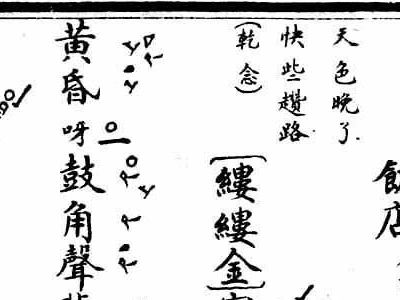 飯店
天色晚了
快些趲路
(乾念)
【縷縷金】
黃昏呀鼓角聲